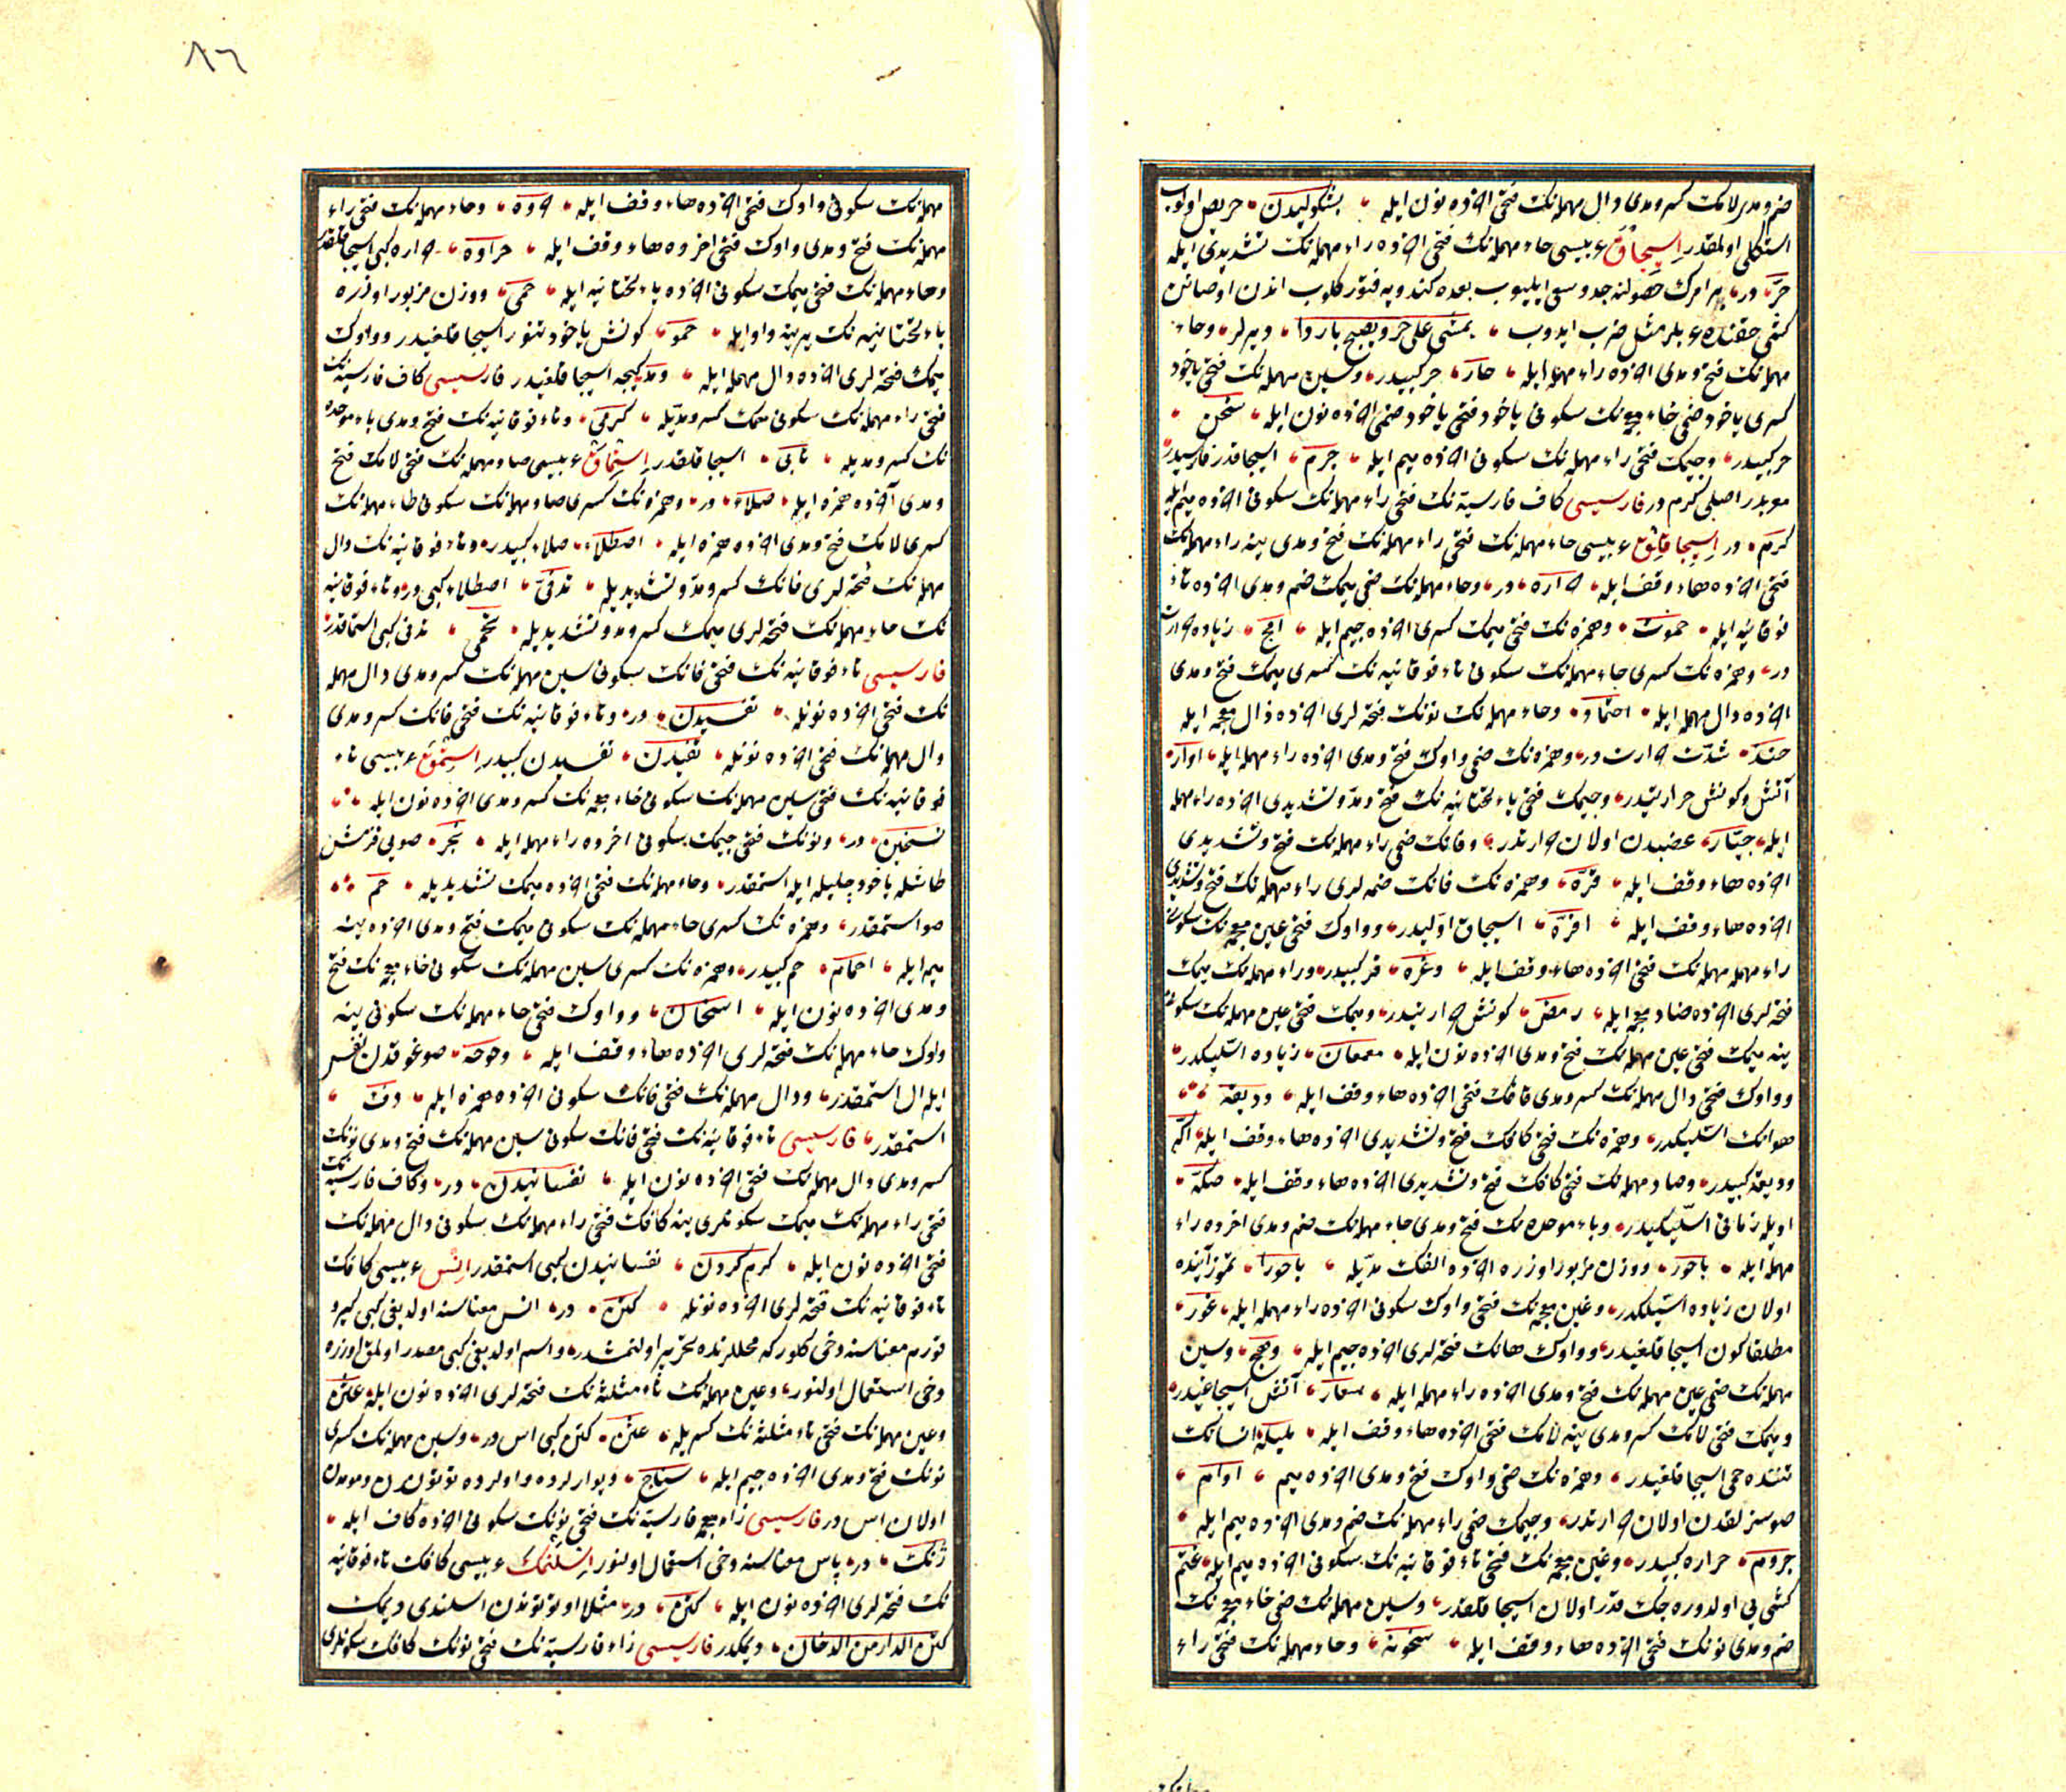 ضم ومدى لامك كسر ومدى دال مهمله‌نك فتحى اخرده نون ايله بشكوليدن حريص اولوب
استكلى اولمقدر اسيجاق عربيسى حاء مهمله‌نك فتحى اخرده راء مهمله‌نك تشديدى ايله
حر در بر امرك حصولنه جد وسعى ايليوب بعده كندويه فتور كلوب اندن اوصانن
كشى حقنده عربلر مثل ضرب ايدوب يمشى على حر ويصبح باردا ديرلر وحاء
مهمله‌نك فتح ومدى اخرده راء مهمله ايله حار حر كبيدر وسين مهمله‌نك فتحى ياخود
كسرى ياخود ضمى خاء معجمه‌نك سكونى ياخود فتحى ياخود ضمى اخرده نون ايله سخن
حر كبيدر وجيمك فتحى راء مهمله‌نك سكونى اخرده ميم ايله جرم اسيجاقدر فارسيدن
معربدر اصلى كرم در فارسيسى كاف فارسيه‌نك فتحى راء مهمله‌نك سكونى اخرده ميم ايله
كرم در اسيجاقلق عربيسى حاء مهمله‌نك فتحى راء مهمله‌نك فتح ومدى ينه راء مهمله‌نك
فتحى اخرده هاء وقف ايله حراره در وحاء مهمله‌نك ضمى ميمك ضم ومدى اخرده تاء
فوقانيه ايله حموت وهمزه‌نك فتحى ميمك كسرى اخرده جيم ايله امج زياده حرارت
در وهمزه‌نك كسرى حاء مهمله‌نك سكونى تاء فوقانيه‌نك كسرى ميمك فتح ومدى
اخرده دال مهمله ايله احتماد وحاء مهمله‌نك نونك فتحه‌لرى اخرده ذال معجمه ايله
حنذ شدت حرارت در وهمزه‌نك ضمى واوك فتح ومدى اخرده راء مهمله ايله اوار
آتش وكونش حرارتيدر وجيمك فتحى ياء تحتانيه‌نك فتح ومد وتشديدى اخرده راء مهمله
ايله جيار غضبدن اولان حرارتدر وقافك ضمى راء مهمله‌نك فتح وتشديدى
اخرده هاء وقف ايله قره وهمزه‌نك فانك ضمه‌لرى راء مهمله‌نك فتح وتشديدى
اخرده هاء وقف ايله افره اسيجاق اوليدر وواوك فتحى غين معجمه‌نك سكونى
راء مهمله‌نك فتحى اخرده هاء وقف ايله وغره قر كبيدر وراء مهمله‌نك ميمك
فتحه‌لرى اخرده ضاد معجمه ايله رمض كونش حرارتيدر وميمك فتحى عين مهمله‌نك سكونى
ينه ميمك فتحى عين مهمله‌نك فتح ومدى اخرده نون ايله معمعان زياده استيلكدر
وواوك فتحى دال مهمله‌نك كسر ومدى قافك فتحى اخرده هاء وقف ايله وديقه
هوانك استيلكدر وهمزه‌نك فتحى كافك فتح وتشديدى اخرده هاء وقف ايله اكه
وديقه كبيدر وصاد مهمله‌نك فتحى كافك فتح وتشديدى اخرده هاء وقف ايله صكه
اويله زمانى استيلكيدر وباء موحده‌نك فتح ومدى حاء مهمله‌نك ضم ومدى اخرده راء
مهمله ايله باحور ووزن مزبور اوزره اخرده الفك مديله باحورا تموز آينده
اولان زياده استيلكدر وغين معجمه‌نك فتحى واوك سكونى اخرده راء مهمله ايله غور
مطلقا كون اسيجاقلغيدر وواوك هانك فتحه‌لرى اخرده جيم ايله وهج وسين
مهمله‌نك ضمى عين مهمله‌نك فتح ومدى اخرده راء مهمله ايله سعار آتش اسيجاغيدر
وميمك فتحى لامك كسر ومدى ينه لامك فتحى اخرده هاء وقف ايله مليله انسانك
تننده حمى اسيجاقلغيدر وهمزه‌نك ضمى واوك فتح ومدى اخرده ميم اوام
صوسزلقدن اولان حرارتدر وجيمك ضمى راء مهمله‌نك ضم ومدى اخرده ميم ايله
جروم حراره كبيدر وغين معجمه‌نك فتحى تاء فوقانيه‌نك سكونى اخرده ميم ايله غتم
كشى يى اولدوره‌جك قدر اولان اسيجاقلقدر وسين مهمله‌نك ضمى خاء معجمه‌نك
ضم ومدى نونك فتحى اخرده هاء وقف ايله سخونه وحاء مهمله‌نك فتحى راء
٨٦
مهمله‌نك سكونى واوك فتحى اخرده هاء وقف ايله حروه وحاء مهمله‌نك فتحى راء
مهمله‌نك فتح ومدى واوك فتحى اخرده هاء وقف ايله حراوه حراره كبى اسيجاقلقدر
وحاء مهمله‌نك فتحى ميمك سكونى اخرده ياء تحتانيه ايله حمى ووزن مزبور اوزره
ياء تحتانيه‌نك يرينه واو ايله حمو كونش ياخود تنور اسيجاقلغيدر وواوك
ميمك فتحه‌لرى اخرده دال مهمله ايله ومد كيجه اسيجاقلغيدر فارسيسى كاف فارسيه‌نك
فتحى راء مهمله‌نك سكونى ميمك كسر ومديله كرمى وتاء فوقانيه‌نك فتح ومدى باء موحده
نك كسر ومديله تابى اسيجاقلقدر استماق عربيسى صاد مهمله‌نك فتحى لامك فتح
ومدى آخرده همزه ايله صلاء در وهمزه‌نك كسرى صاد مهمله‌نك سكونى طاء مهمله‌نك
كسرى لامك فتح ومدى اخرده همزه ايله اصطلاء صلاء كبيدر وتاء فوقانيه‌نك دال
مهمله‌نك فتحه‌لرى فانك كسر ومد وتشديديله تدفى اصطلاء كبى در وتاء فوقانيه
نك حاء مهمله‌نك فتحه‌لرى ميمك كسر ومد وتشديديله تحمى تدفى كبى استماقدر
فارسيسى تاء فوقانيه‌نك فتحى فانك سكونى سين مهمله‌نك كسر ومدى دال مهمله
نك فتحى اخرده نونله تفسيدن در وتاء فوقانيه‌نك فتحى فانك كسر ومدى
دال مهمله‌نك فتحى اخرده نونله تفيدن تفسيدن كبيدر استمق عربيسى تاء
فوقانيه‌نك فتحى سين مهمله‌نك سكونى خاء معجمه‌نك كسر ومدى اخرده نون ايله
تسخين در ونونك فتحى جيمك سكونى اخرده راء مهمله ايله نجر صويى قزمش
طاشله ياخود چليله ايله استمقدر وحاء مهمله‌نك فتحى اخرده ميمك تشديديله حم
صو استمقدر وهمزه‌نك كسرى حاء مهمله‌نك سكونى ميمك فتح ومدى اخرده ينه
ميم ايله احمام حم كبيدر وهمزه‌نك كسرى سين مهمله‌نك سكونى خاء معجمه‌نك فتح
ومدى اخرده نون ايله اسخان وواوك فتحى حاء مهمله‌نك سكونى ينه
واوك حاء مهمله‌نك فتحه‌لرى اخرده هاء وقف ايله وحوحه صوغوقدن نفس
ايله ال استمقدر ودال مهمله‌نك فتحى فانك سكونى اخرده همزه ايله دفء
استمقدر فارسيسى تاء فوقانيه‌نك فتحى فانك سكونى سين مهمله‌نك فتح ومدى نونك
كسر ومدى دال مهمله‌نك فتحى اخرده نون ايله تفسانيدن در وكاف فارسيه‌نك
فتحى راء مهمله‌نك ميمك سكونلرى ينه كافك فتحى راء مهمله‌نك سكونى دال مهمله‌نك
فتحى اخرده نون ايله كرم كردن تفسانيدن كبى استمقدر اس عربيسى كافك
تاء فوقانيه‌نك فتحه‌لرى اخرده نونله كتن در اس معناسنه اولديغى كبى كير و
تورم معناسنه دخى كلور كه محللرنده تحرير اولنمشدر واسم اولديغى كبى مصدر اولمق اوزره
دخى استعمال اولنور وعين مهمله‌نك ثاء مثلثه‌نك فتحه‌لرى اخرده نون ايله عثن
وعين مهمله‌نك فتحى ثاء مثلثه‌نك كسريله عثن كتن كبى اس در وسين مهمله‌نك كسرى
نونك فتح ومدى اخرده جيم ايله سناج ديوارلرده واولرده توتوندن ومومدن
اولان اس در فارسيسى زاء معجمه فارسيه‌نك فتحى نونك سكونى اخرده كاف ايله
ژنك در پاس معناسنه دخى استعمال اولنور اسلنمك عربيسى كافك تاء فوقانيه
نك فتحه‌لرى اخرده نون ايله كتن در مثلا او توتوندن اسلندى ديمك
كتن الدار من الدخان ديمكدر فارسيسى زاء فارسيه‌نك فتحى نونك كافك سكونلرى